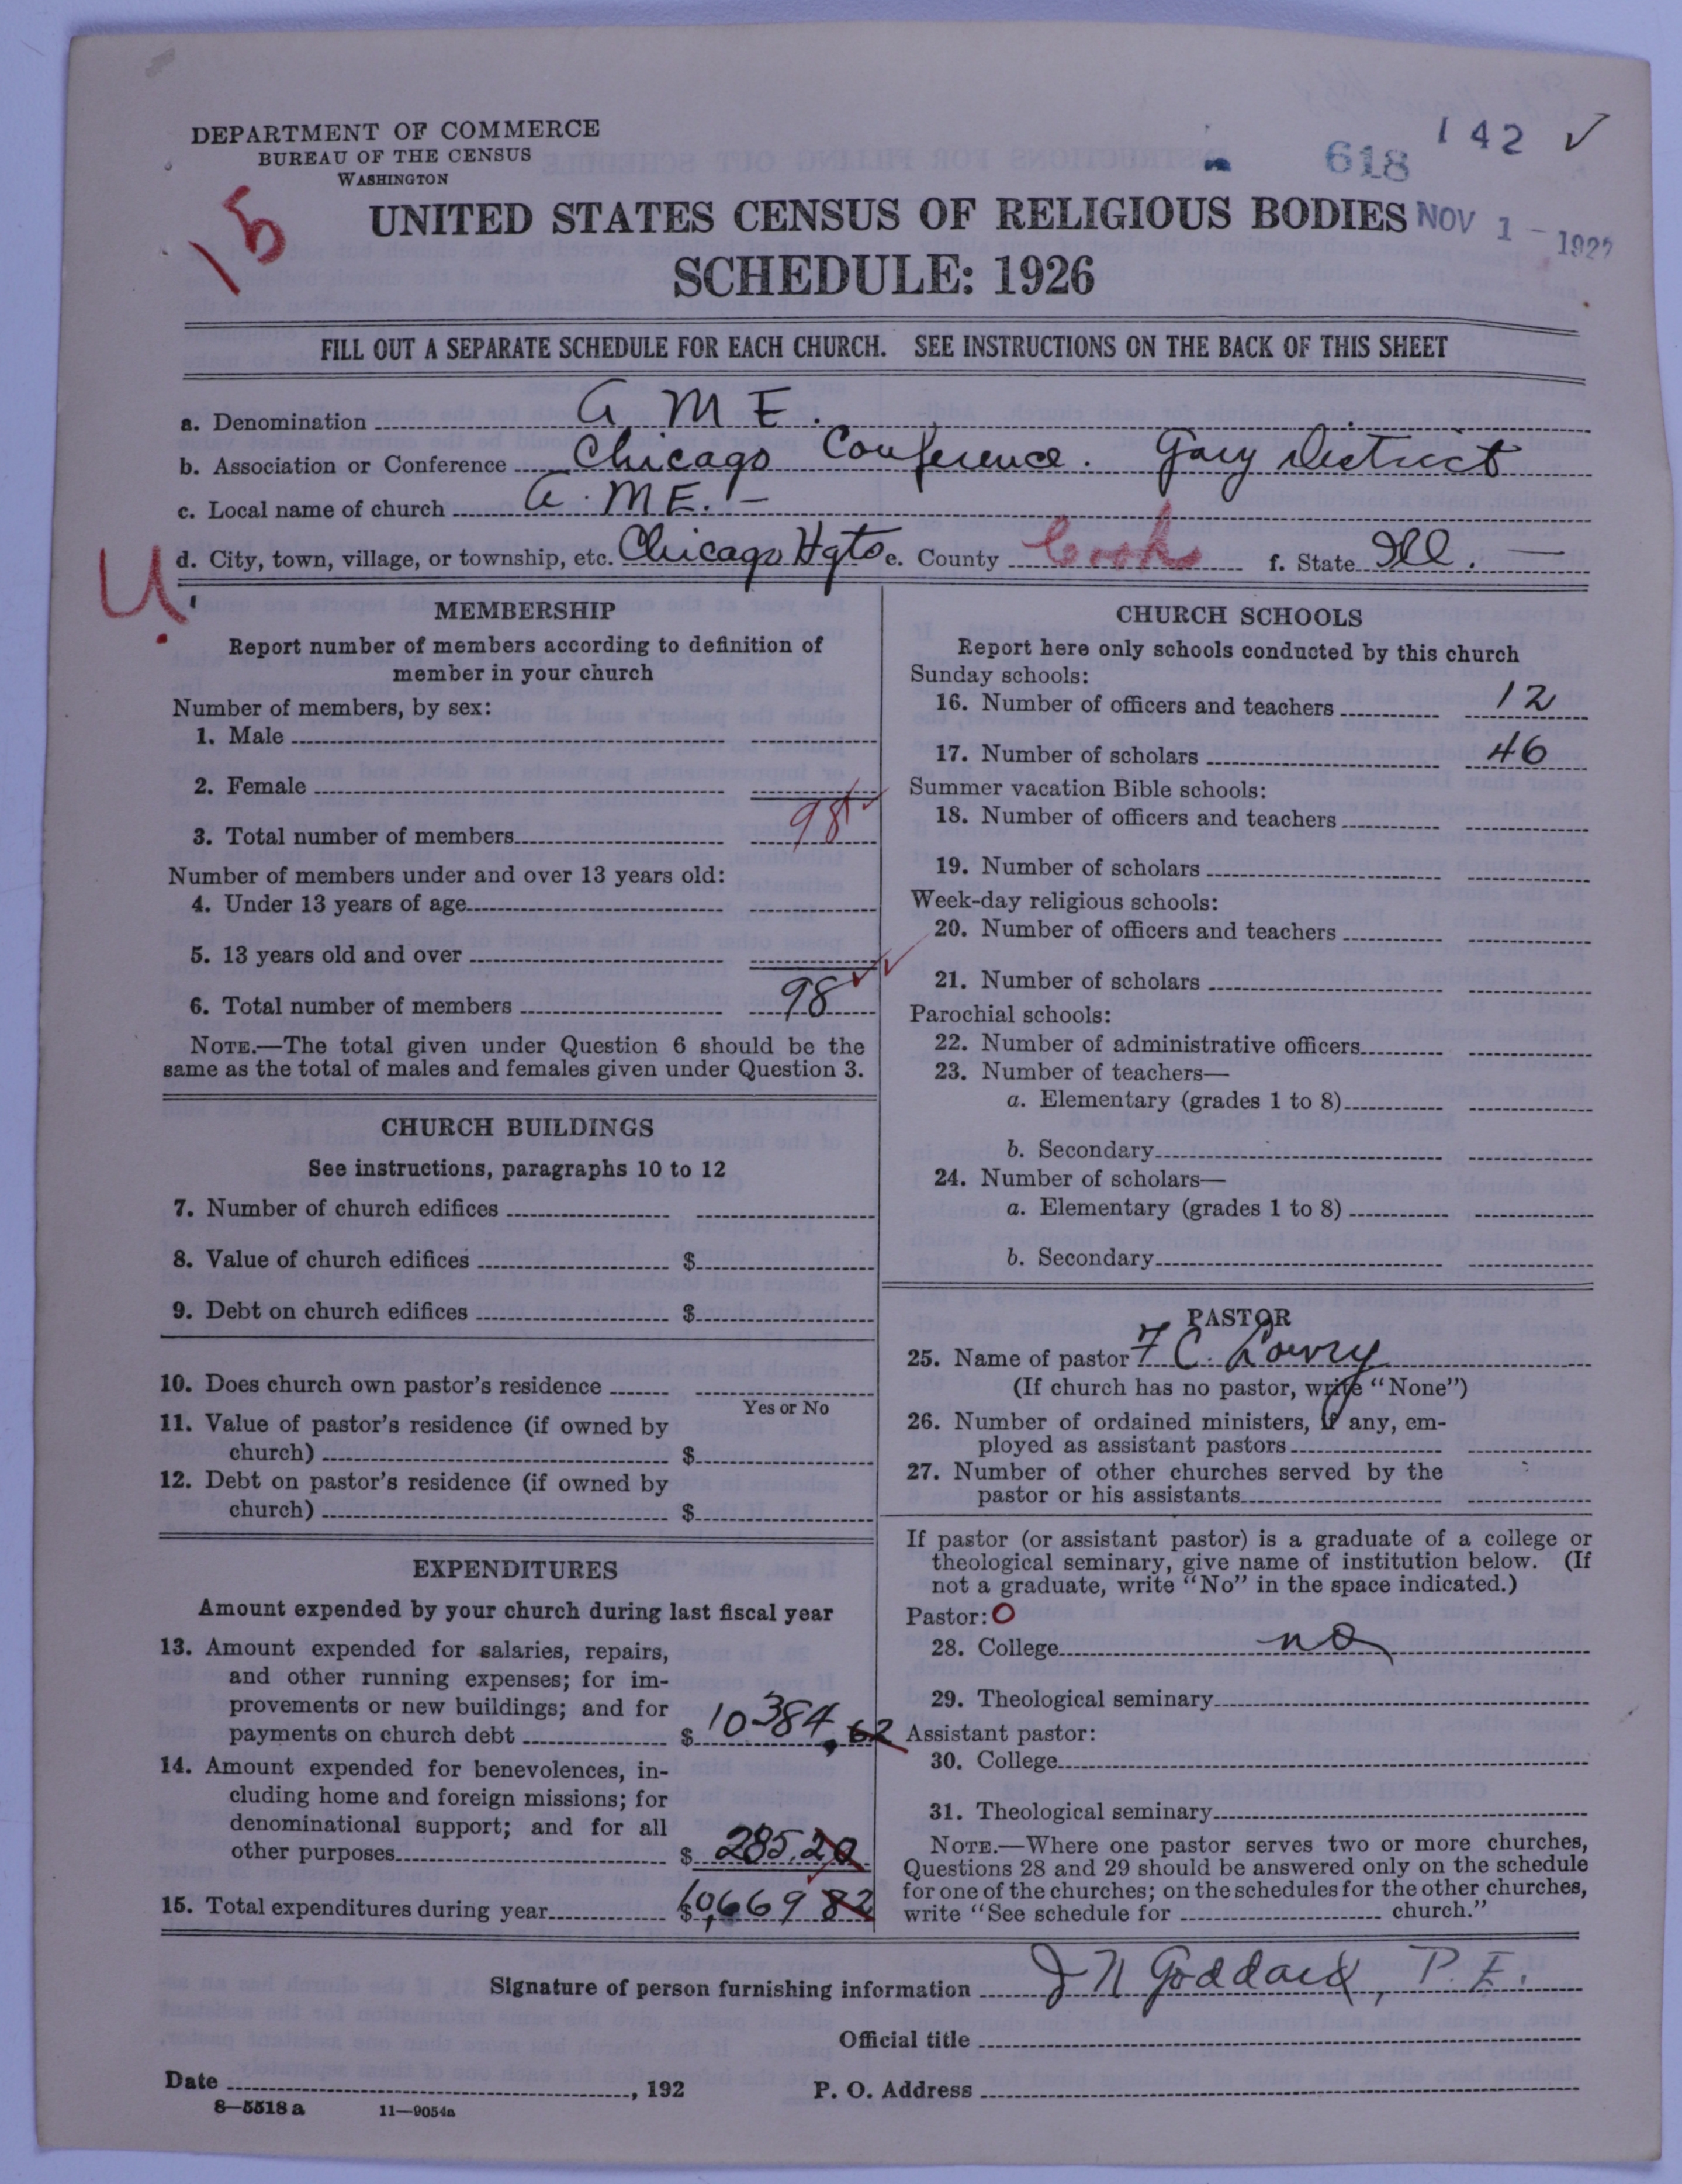 DEPARTMENT OF COMMERCE
BUREAU OF THE CENSUS
WASHINGTON
618
142 ✓
15
UNITED STATES CENSUS OF RELIGIOUS BODIES
NOV 1 - 1927
SCHEDULE: 1926
FILL OUT A SEPARATE SCHEDULE FOR EACH CHURCH. SEE INSTRUCTIONS ON THE BACK OF THIS SHEET
a. Denomination A M E.
b. Association or Conference Chicago Conference. Gary District
c. Local name of church A. M E. —
d. City, town, village, or township, etc. Chicago Hgts e. County Cook f. State Ill. —
U
MEMBERSHIP
Report number of members according to definition of
member in your church
Number of members, by sex:
1. Male
2. Female
3. Total number of members 98 ✓
Number of members under and over 13 years old:
4. Under 13 years of age
5. 13 years old and over
6. Total number of members 98 ✓✓
NOTE.—The total given under Question 6 should be the
same as the total of males and females given under Question 3.
CHURCH BUILDINGS
See instructions, paragraphs 10 to 12
7. Number of church edifices
8. Value of church edifices $
9. Debt on church edifices $
10. Does church own pastor's residence
Yes or No
11. Value of pastor's residence (if owned by
church) $
12. Debt on pastor's residence (if owned by
church) $
EXPENDITURES
Amount expended by your church during last fiscal year
13. Amount expended for salaries, repairs,
and other running expenses; for im-
provements or new buildings; and for
payments on church debt $ 10384.62
14. Amount expended for benevolences, in-
cluding home and foreign missions; for
denominational support; and for all
other purposes $ 285.20
15. Total expenditures during year $10,669 82
CHURCH SCHOOLS
Report here only schools conducted by this church
Sunday schools:
16. Number of officers and teachers 12
17. Number of scholars 46
Summer vacation Bible schools:
18. Number of officers and teachers
19. Number of scholars
Week-day religious schools:
20. Number of officers and teachers
21. Number of scholars
Parochial schools:
22. Number of administrative officers
23. Number of teachers—
a. Elementary (grades 1 to 8)
b. Secondary
24. Number of scholars—
a. Elementary (grades 1 to 8)
b. Secondary
PASTOR
25. Name of pastor F C. Lowry
(If church has no pastor, write "None")
26. Number of ordained ministers, if any, em-
ployed as assistant pastors
27. Number of other churches served by the
pastor or his assistants
If pastor (or assistant pastor) is a graduate of a college or
theological seminary, give name of institution below. (If
not a graduate, write "No" in the space indicated.)
Pastor: O
28. College no
29. Theological seminary
Assistant pastor:
30. College
31. Theological seminary
NOTE.—Where one pastor serves two or more churches,
Questions 28 and 29 should be answered only on the schedule
for one of the churches; on the schedules for the other churches,
write "See schedule for church."
Signature of person furnishing information J N Goddard, P. E.
Official title
Date , 192
P. O. Address
8—5518 a 11—9054a